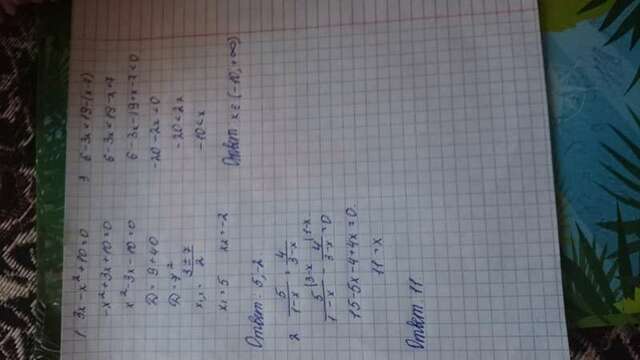 1 3x-x²+10=0
-x²+3x+10=0
x²-3x-10=0
D=9+40
D=7²
x₁,₂= (3±7)/2
x₁=5 x₂=-2
Ответ: 5,-2
2 5/(1-x) = 4/(3-x)
5/(1-x) |3-x - 4/(3-x) |1-x =0
15-5x-4+4x=0
11=x
Ответ 11
3 6-3x<19-(x-7)
6-3x<19-x+7
6-3x-19+x-7<0
-20-2x<0
-20<2x
-10<x
Ответ: x∈(-10,+∞)